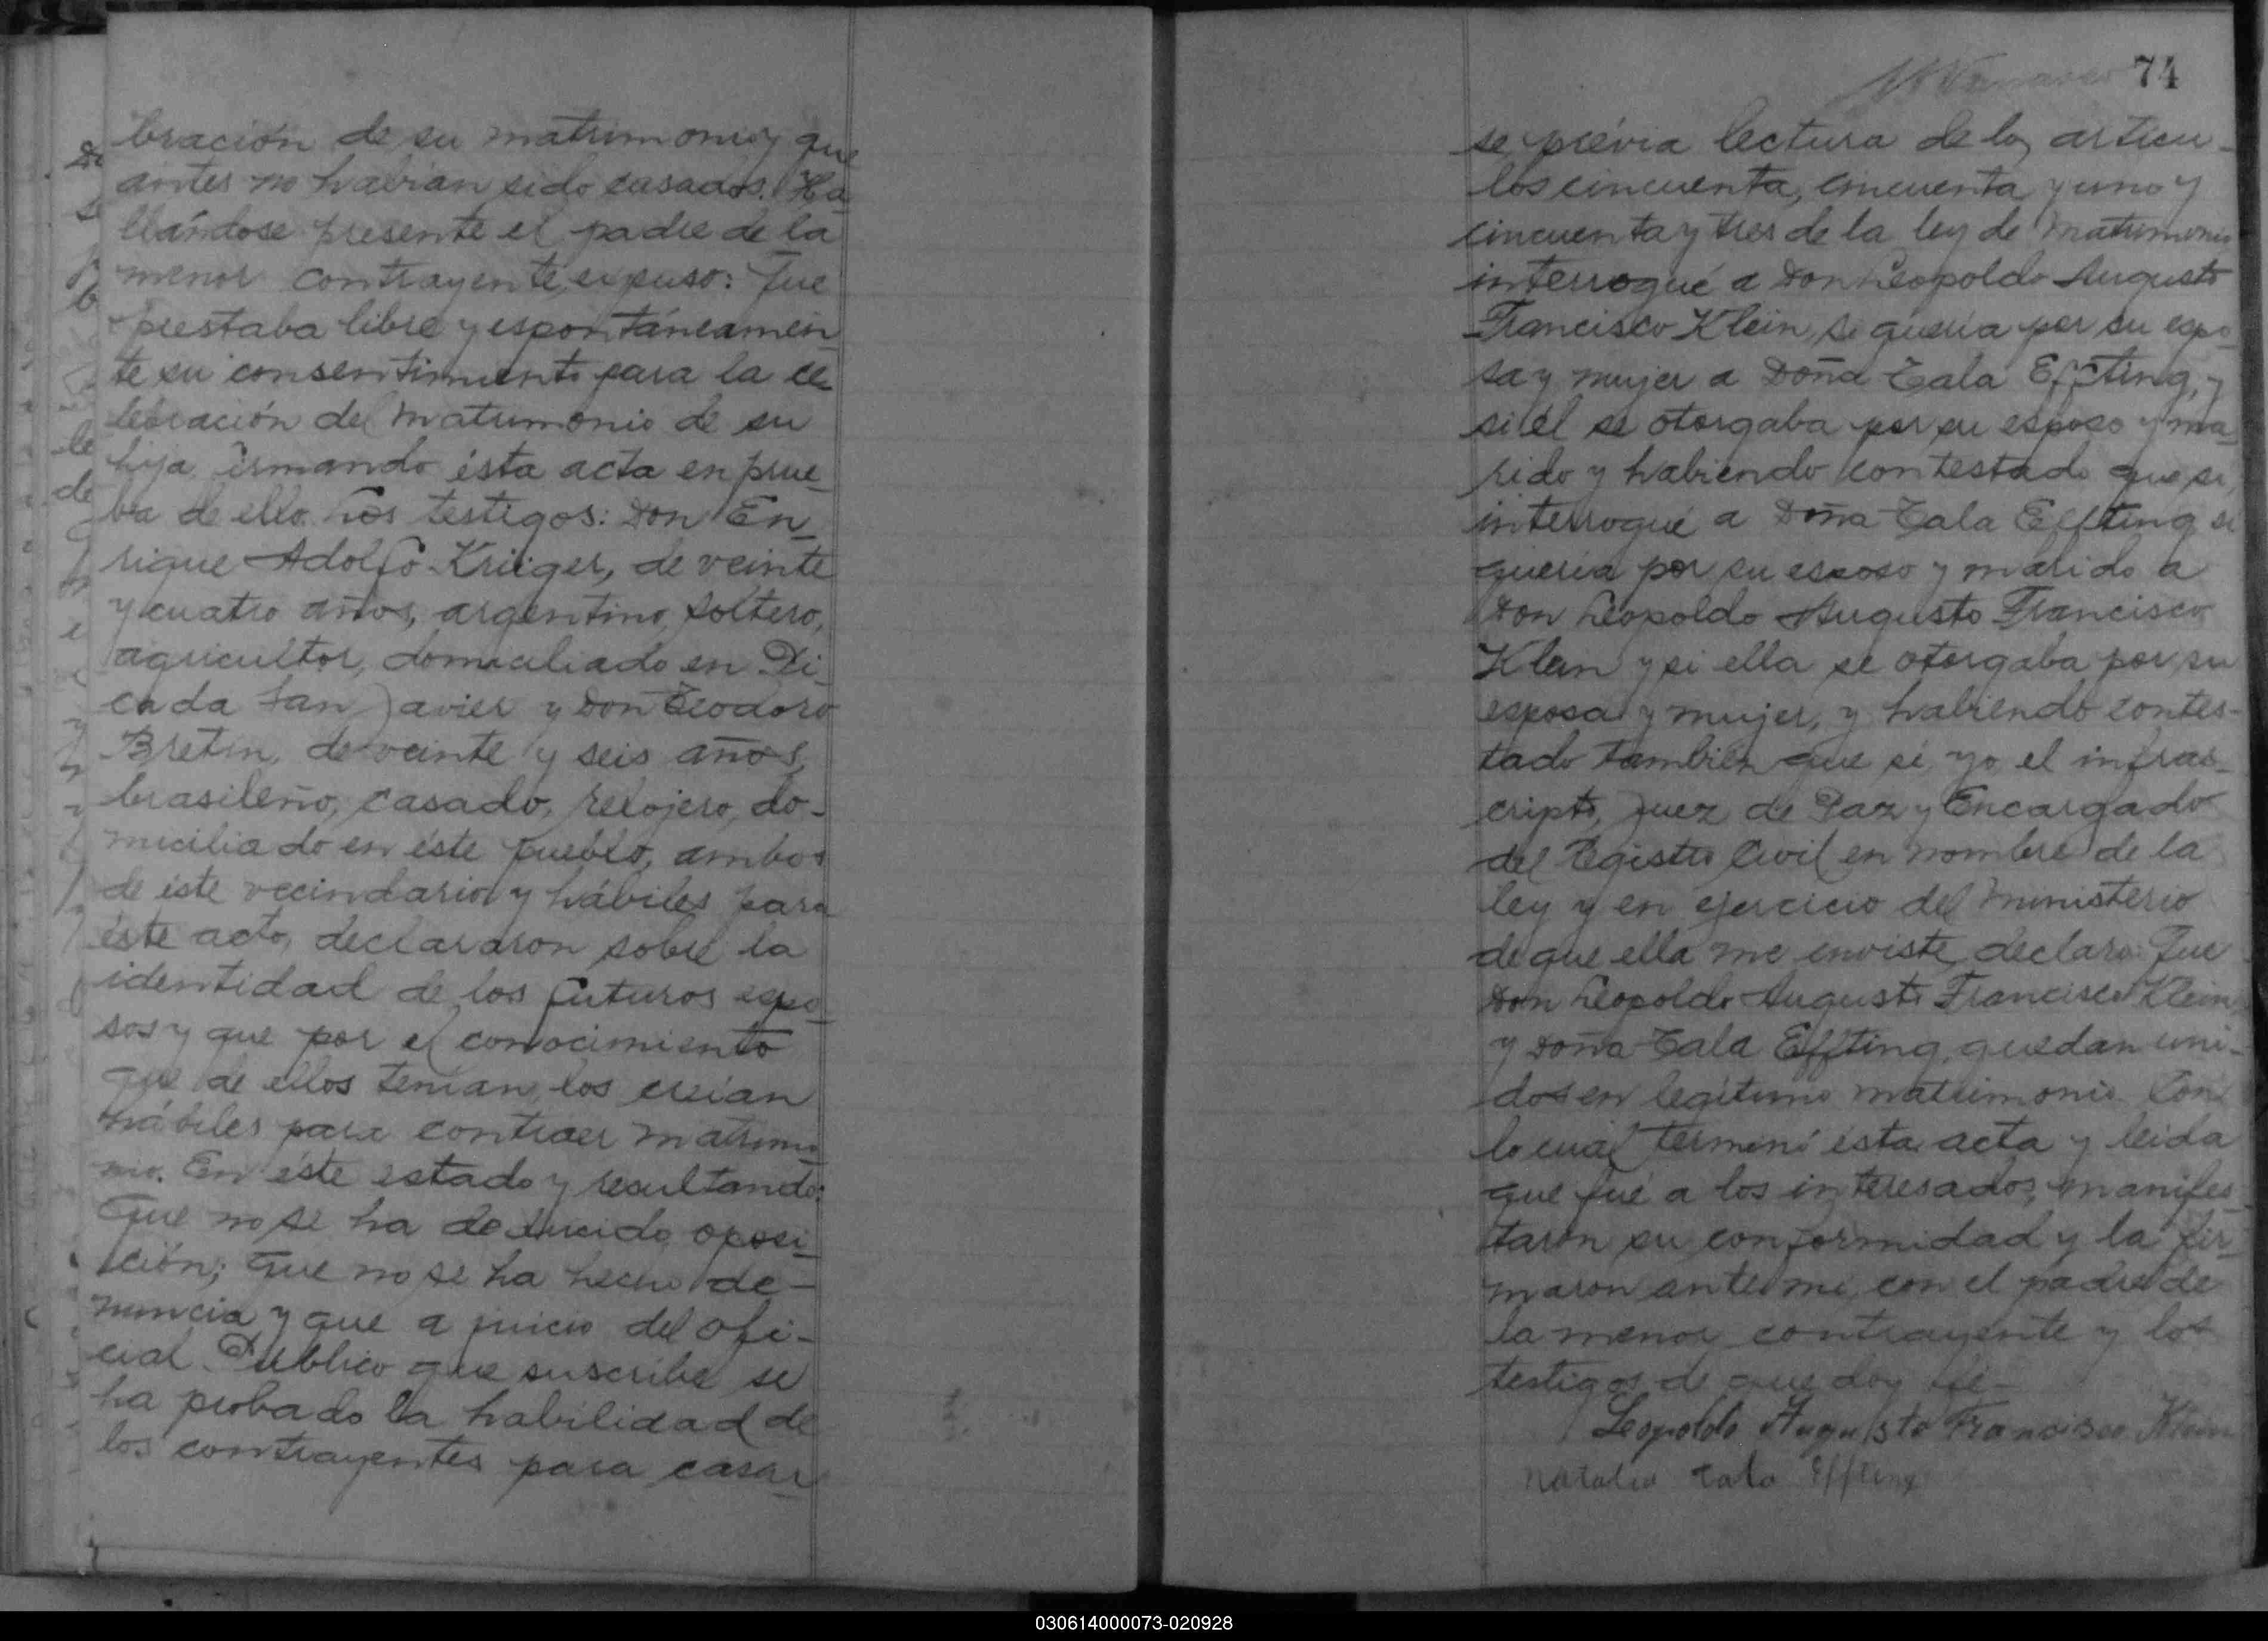 bración de su matrimonio y que
antes no habían sido casados. Ha_
llándose presente el padre de la
menor contrayente, expuso: Que
prestaba libre y espontáneamen_
te su consentimiento para la ce_
lebración del matrimonio de su
hija firmando ésta acta en prue_
ba de ello. Los testigos: Don En_
rique Adolfo Krüger, de veinte
y cuatro años, argentino, soltero,
agricultor, domiciliado en Pi_
cada San Javier y Don Teodoro
Bretin, de veinte y seis años,
brasileño, casado, relojero, do-
miciliado en éste pueblo, ambos
de éste vecindario y hábiles para
éste acto, declararon sobre la
identidad de los futuros espo_
sos y que por el conocimiento
que de ellos tenían, los creían
hábiles para contraer matrimo_
nio. En éste estado y resultando:
Que no se ha deducido oposi_
ción; que no se ha hecho de-
nuncia y que a juicio del ofi-
cial Público que suscribe se
ha probado la habilidad de
los contrayentes para casar_
74
se, prévia lectura de los artícu-
los cincuenta, cincuenta y uno y
cincuenta y tres de la ley de matrimonio
interrogué a Don Leopoldo Augusto
Francisco Klein, si quería por su espo_
sa y mujer a Doña Tala Effting, y
si él se otorgaba por su esposo y ma_
rido y habiendo contestado que si,
interrogué a Doña Tala Effting si
quería por su esposo y marido a
Don Leopoldo Augusto Francisco
Klein y si ella se otorgaba por su
esposa y mujer, y habiendo contes-
tado también que sí, yo, el infras_
cripto, Juez de Paz y Encargado
del Registro Civil en nombre de la
ley y en ejercicio del ministerio
de que ella me enviste, declaro: Que
Don Leopoldo Augusto Francisco Klein
y Doña Tala Effting, quedan uni-
dos en legítimo matrimonio. Con
lo cual terminó ésta acta y leida
que fué a los interesados, manifes_
taron su conformidad y la fir_
maron ante mí, con el padre de
la menor contrayente y los
testigos de que doy fé-
Leopoldo Augusto Francisco Klein
Natalia Tala Effting
030614000073-020928